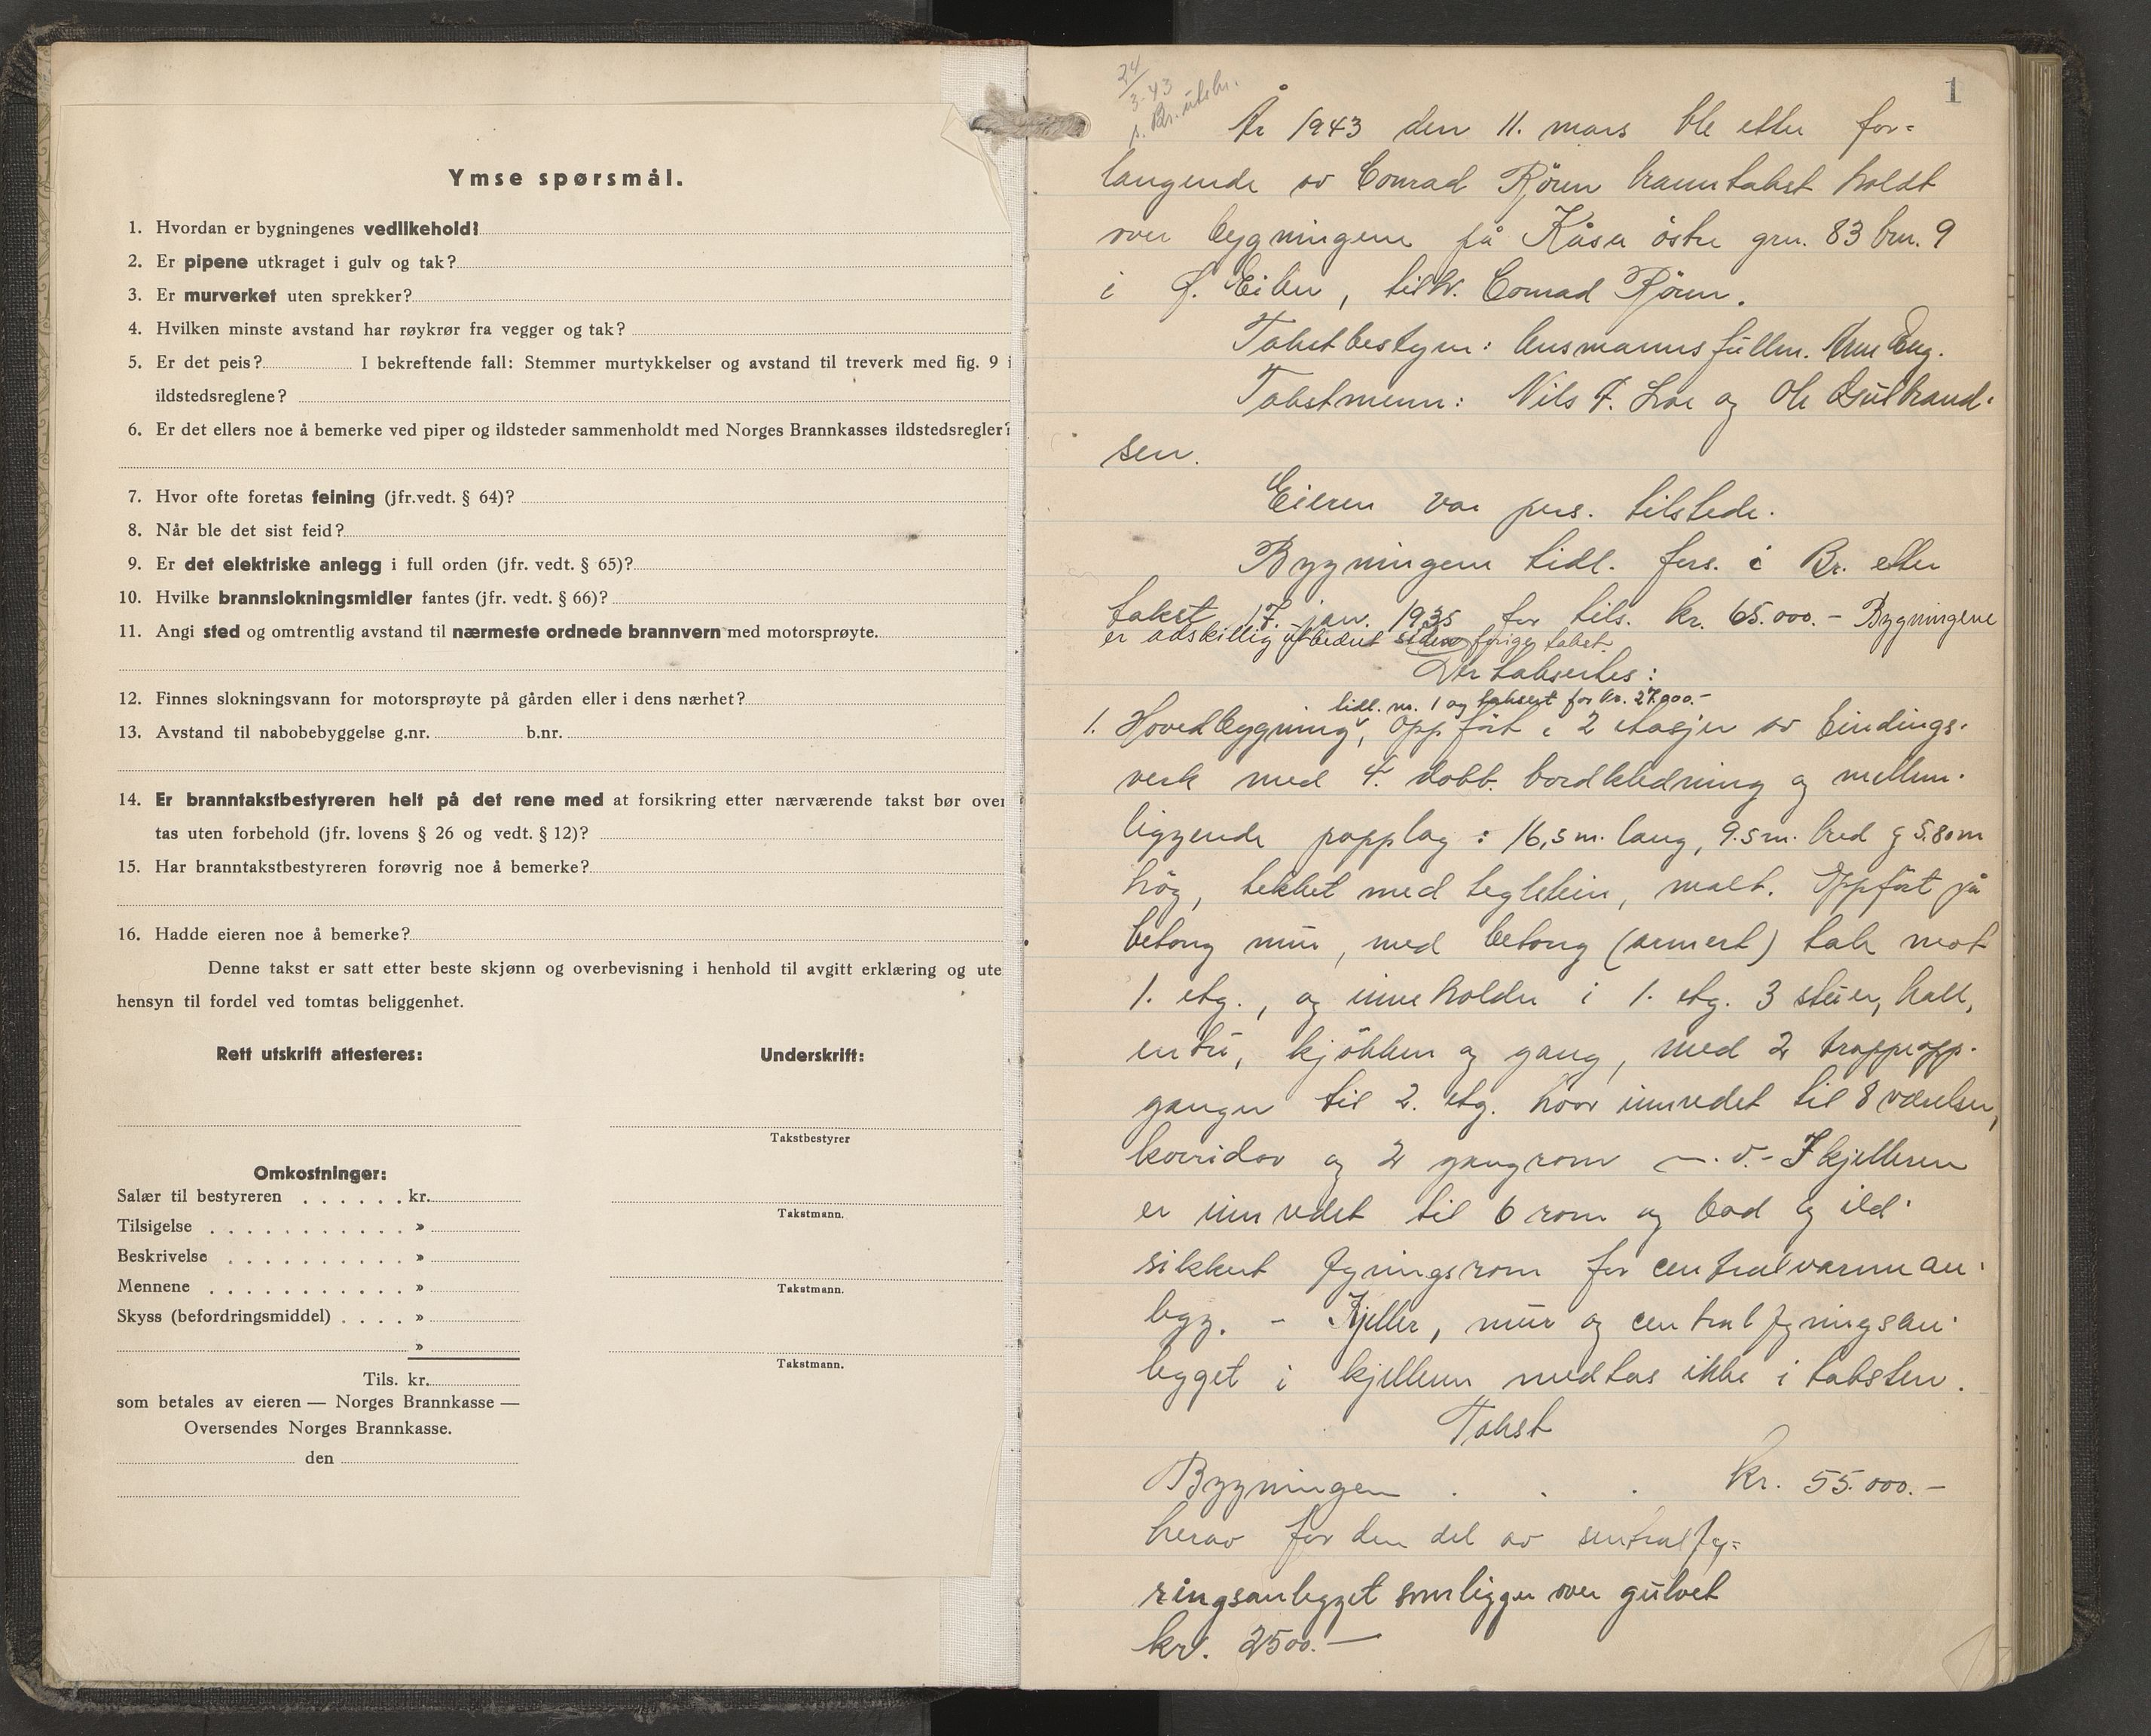 Ymse spørsmål.
1. Hvordan er bygningenes vedlikehold?
2. Er pipene utkraget i gulv og tak?
3. Er murverket uten sprekker?
4. Hvilken minste avstand har røykrør fra vegger og tak?
5. Er det peis? I bekreftende fall: Stemmer murtykkelser og avstand til treverk med fig. 9 i
ildstedsreglene?
6. Er det ellers noe å bemerke ved piper og ildsteder sammenholdt med Norges Brannkasses ildstedsregler?
7. Hvor ofte foretas feining (jfr.vedt. § 64)?
8. Når ble det sist feid?
9. Er det elektriske anlegg i full orden (jfr. vedt. § 65)?
10. Hvilke brannslokningsmidler fantes (jfr. vedt. § 66)?
11. Angi sted og omtrentlig avstand til nærmeste ordnede brannvern med motorsprøyte.
12. Finnes slokningsvann for motorsprøyte på gården eller i dens nærhet?
13. Avstand til nabobebyggelse g.nr. b.nr.
14. Er branntakstbestyreren helt på det rene med at forsikring etter nærværende takst bør over
tas uten forbehold (jfr. lovens § 26 og vedt. § 12)?
15. Har branntakstbestyreren forøvrig noe å bemerke?
16. Hadde eieren noe å bemerke?
Denne takst er satt etter beste skjønn og overbevisning i henhold til avgitt erklæring og ute
hensyn til fordel ved tomtas beliggenhet.
Rett utskrift attesteres:
Underskrift:
Takstbestyrer
Omkostninger:
Salær til bestyreren . . . . . . kr.
Takstmann.
Tilsigelse . . . . . . . . . . . »
Beskrivelse . . . . . . . . . . »
Mennene . . . . . . . . . . . »
Takstmann.
Skyss (befordringsmiddel) . . . . »
»
Takstmann.
Tils. kr.
som betales av eieren — Norges Brannkasse —
Oversendes Norges Brannkasse.
den
1
24/3-43
Br. utskr.
År 1943 den 11. mars ble etter for=
langende av Conrad Rören branntakst holdt
over bygningene på Kåsa östre grn. 83 brn. 9
i Eiker, tilh. Conrad Rören.
Takstbestyrer: lensmannsfullm. Arne Eng.
Takstmenn: Nils F. Loe og Ole Gulbrand-
sen.
Eieren var pers. tilstede.
Bygningene tidl. fors. i Br. etter
takst 17. jan. 1935 for tils. kr. 65.000.- Bygningene
er adskillig utbedret siden forige takst.
Der taksertes:
tidl. nr. 1 og taksert for kr. 27.000.-
1. Hovedbygning, oppfört i 2 etasjer av bindings-
verk med 4. dobb. bordkledning og mellem-
liggende papplag: 16,5 m. lang, 9.5 m. bred og 5.80 m
hög, tekket med teglstein, malt. Oppfört på
betong mur, med betong (armert) tak mot
1. etg., og inneholder i 1. etg. 3 stuer, hall,
entre, kjökken og gang, med 2 trappeopp-
ganger til 2. etg. hvor innredet til 8 værelser,
korridor og 2 gangrom m. v. - I kjelleren
er innredet til 6 rom og bad og ild-
sikkert fyringsrom for centralvarmean-
legg. - Kjeller, mur og centralfyringsan-
legget i kjelleren medtas ikke i taksten.
Takst
Bygningen . . . kr. 55.000.-
herav for den del av sentralfy=
ringsanlegget som ligger over gulvet
kr. 2500.—